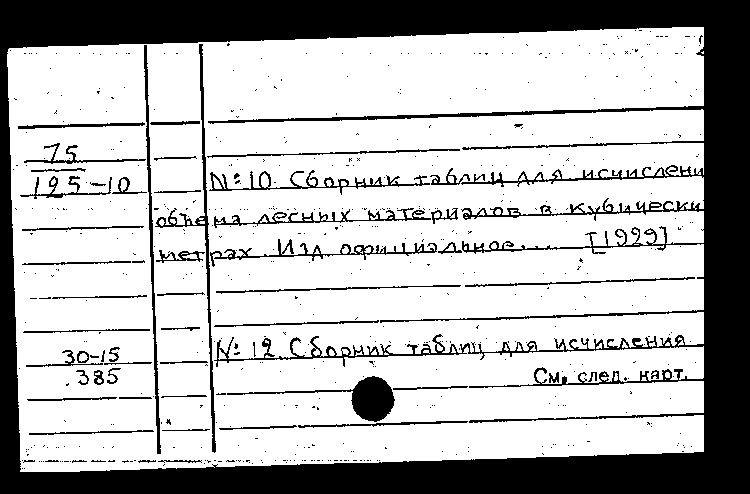 75
125-10 № 10. Сборник таблиц для исчислени
объема лесных материалов в кубически
метрах. Изд. официальное.... [1929]
30-15 № 12. Сборник таблиц для исчисления
385 См. след. карт.